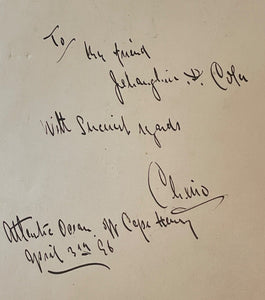 To
My friend
Jehanghier. D. Cola
With Sincerest regards
Cheiro
Atlantic Ocean. off Cape Henry
April 3rd 96